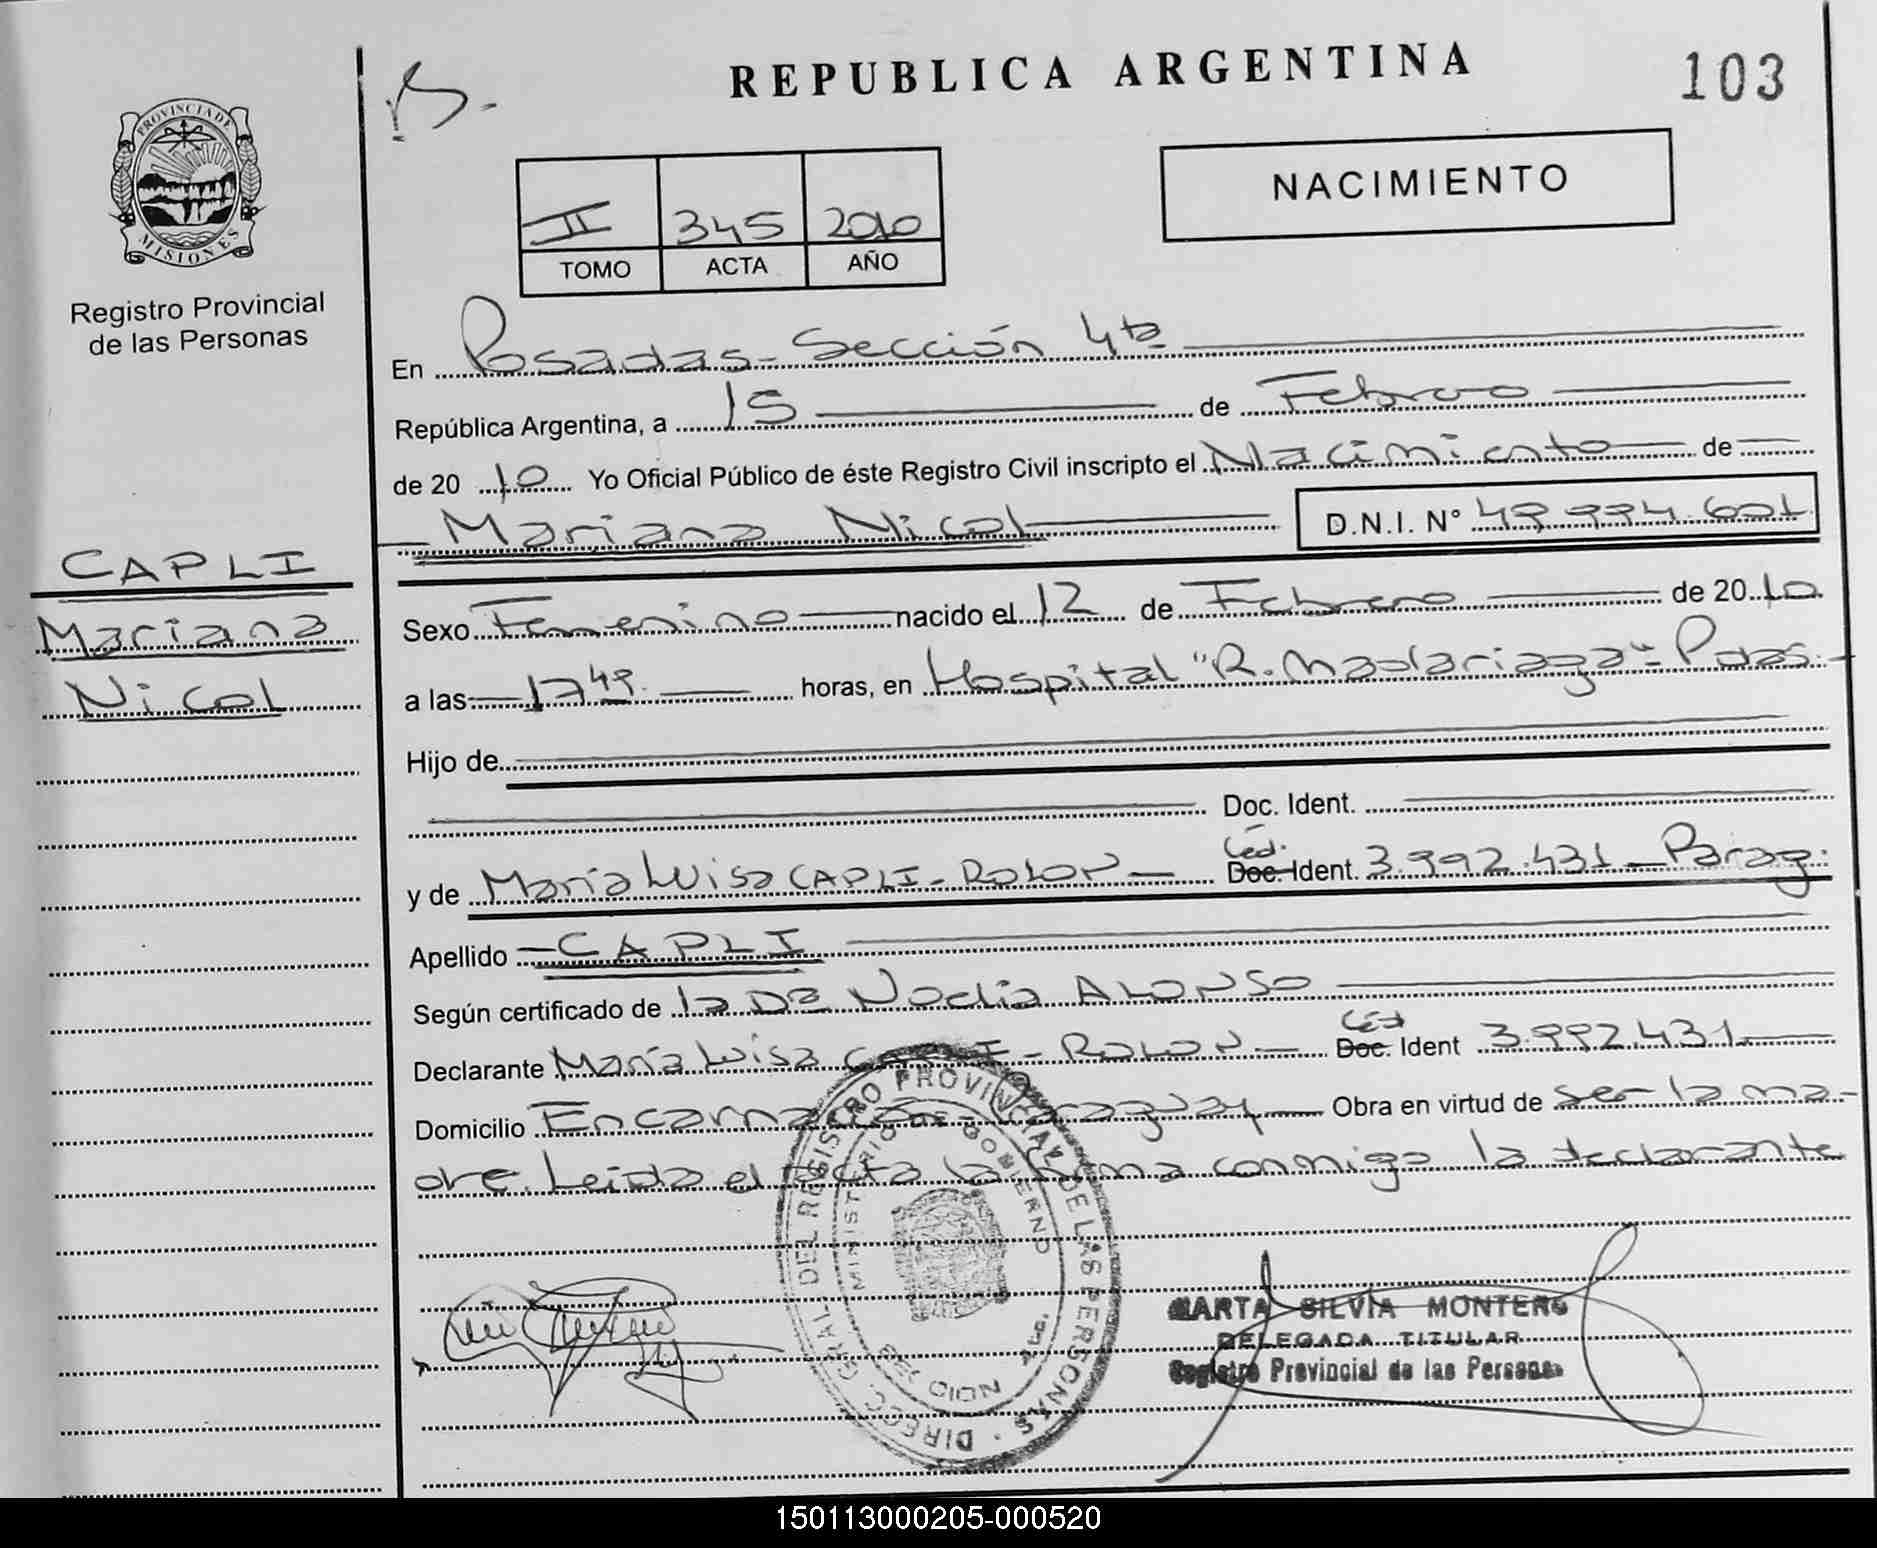 REPUBLICA ARGENTINA
103
PROVINCIA DE
MISIONES
Registro Provincial
de las Personas
II 345 2010
TOMO ACTA AÑO
NACIMIENTO
En Posadas - Sección 4ta
República Argentina, a 15 de Febrero
de 2010 Yo Oficial Público de éste Registro Civil inscripto el Nacimiento de
Mariana Nicol D.N.I. N°
CAPLI
Mariana
Nicol
Sexo Femenino nacido el 12 de Febrero de 2010
a las 17 49 horas, en Hospital "R. Madariaga" - Pdas.
Hijo de
Doc. Ident.
y de María Luisa CAPLI - ROLON Céd. Doc. Ident. 3.992.431 Parag.
Apellido CAPLI
Según certificado de la Dra Noelia ALONSO
Declarante María Luisa CAPLI - ROLON Céd Doc. Ident 3.992.431
Domicilio Encarnación - Paraguay Obra en virtud de ser la ma-
dre. Leida el acta la firma conmigo la declarante
DIRECC. GRAL. DEL REGISTRO PROVINCIAL DE LAS PERSONAS
MINISTERIO DE GOBIERNO
MARTA SILVIA MONTERO
DELEGADA TITULAR
Registro Provincial de las Personas
150113000205-000520